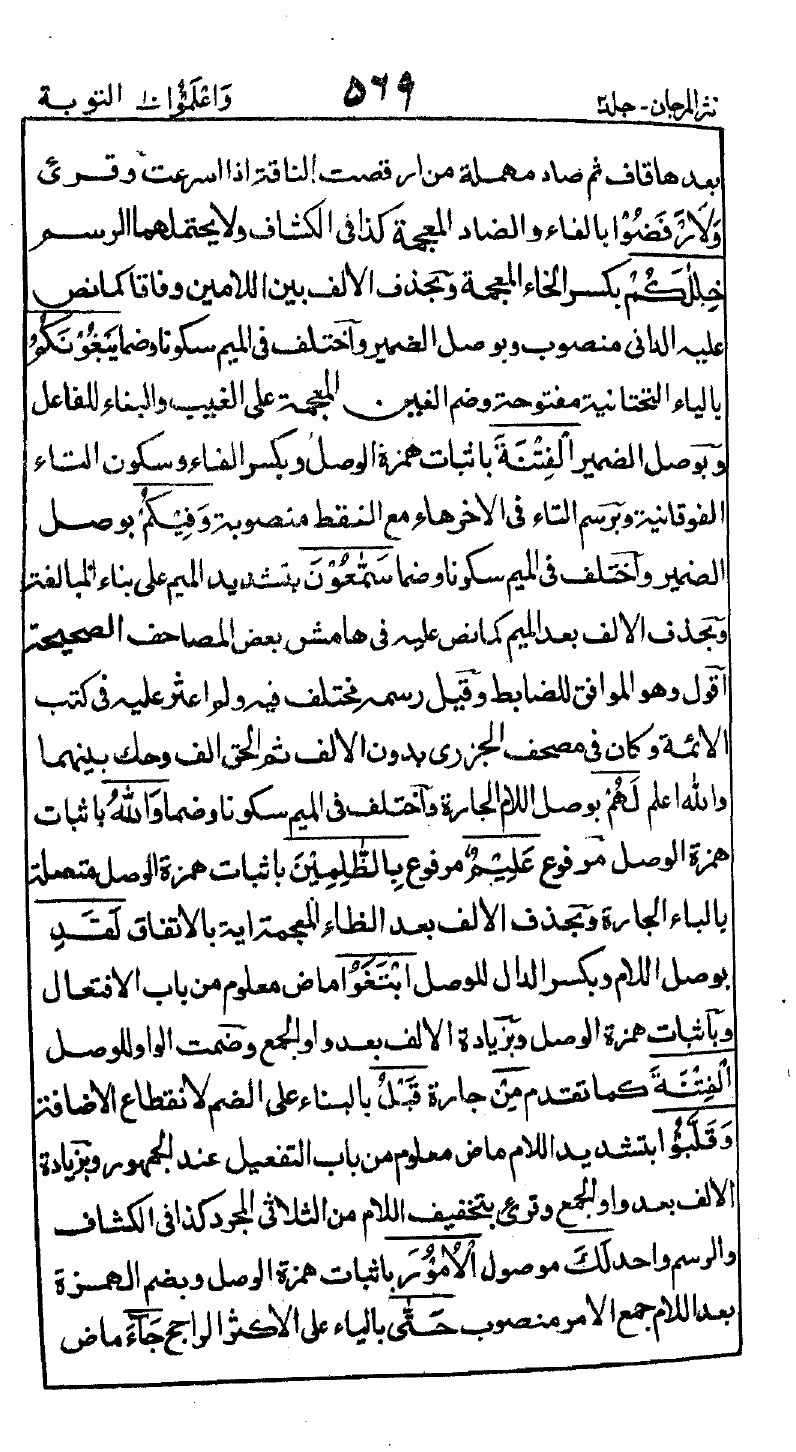 نثر المرجان - جلد٢ ٥٦٩ وَاعْلَمُوْا ١٠ التوبة
بعدها قاف ثم صاد مهملة من ارقصت الناقة اذا اسرعت وقرئ
وَلَارْفَضُوْا بالفاء والضاد المعجمة كذا فى الكشاف ولا يحتملهما الرسم
خِلٰلَكُمْ بكسر الخاء المعجمة وبحذف الالف بين اللامين وفاقا كما نص
عليه الدانى منصوب وبوصل الضمير واختلف فى الميم سكونا وضما يَبْغُوْنَكُمُ
بالياء التحتانية مفتوحة وضم الغين المعجمة على الغيب والبناء للفاعل
وبوصل الضمير الْفِتْنَةَ باثبات همزة الوصل وبكسر الفاء وسكون التاء
الفوقانية وبرسم التاء فى الاخر هاء مع النقط منصوبة وَفِيْكُمْ بوصل
الضمير واختلف فى الميم سكونا وضما سَمّٰعُوْنَ بتشديد الميم على بناء المبالغة
وبحذف الالف بعد الميم كما نص عليه فى هامش بعض المصاحف الصحيحة
اقول وهو الموافق للضابط وقيل رسمه مختلف فيه ولم اعثر عليه فى كتب
الائمة وكان فى مصحف الجزرى بدون الالف ثم الحق الف وحك بينهما
والله اعلم لَهُمْ بوصل اللام الجارة واختلف فى الميم سكونا وضما وَاللّٰهُ باثبات
همزة الوصل مرفوع عَلِيْمٌۢ مرفوع بِالظّٰلِمِيْنَ باثبات همزة الوصل متصلة
بالباء الجارة وبحذف الالف بعد الظاء المعجمة اية بالاتفاق لَقَدِ
بوصل اللام وبكسر الدال للوصل ابْتَغَوُا ماض معلوم من باب الافتعال
وباثبات همزة الوصل وبزيادة الالف بعد واو الجمع وضمت الواو للوصل
الْفِتْنَةَ كما تقدم مِنْ جارة قَبْلُ بالبناء على الضم لانقطاع الاضافة
وَقَلَّبُوْا بتشديد اللام ماض معلوم من باب التفعيل عند الجمهور وبزيادة
الالف بعد واو الجمع وقرئ بتخفيف اللام من الثلاثى المجرد كذا فى الكشاف
والرسم واحد لَكَ موصول الْاُمُوْرَ باثبات همزة الوصل وبضم الهمزة
بعد اللام جمع الامر منصوب حَتّٰى بالياء على الاكثر الراجح جَآءَ ماض